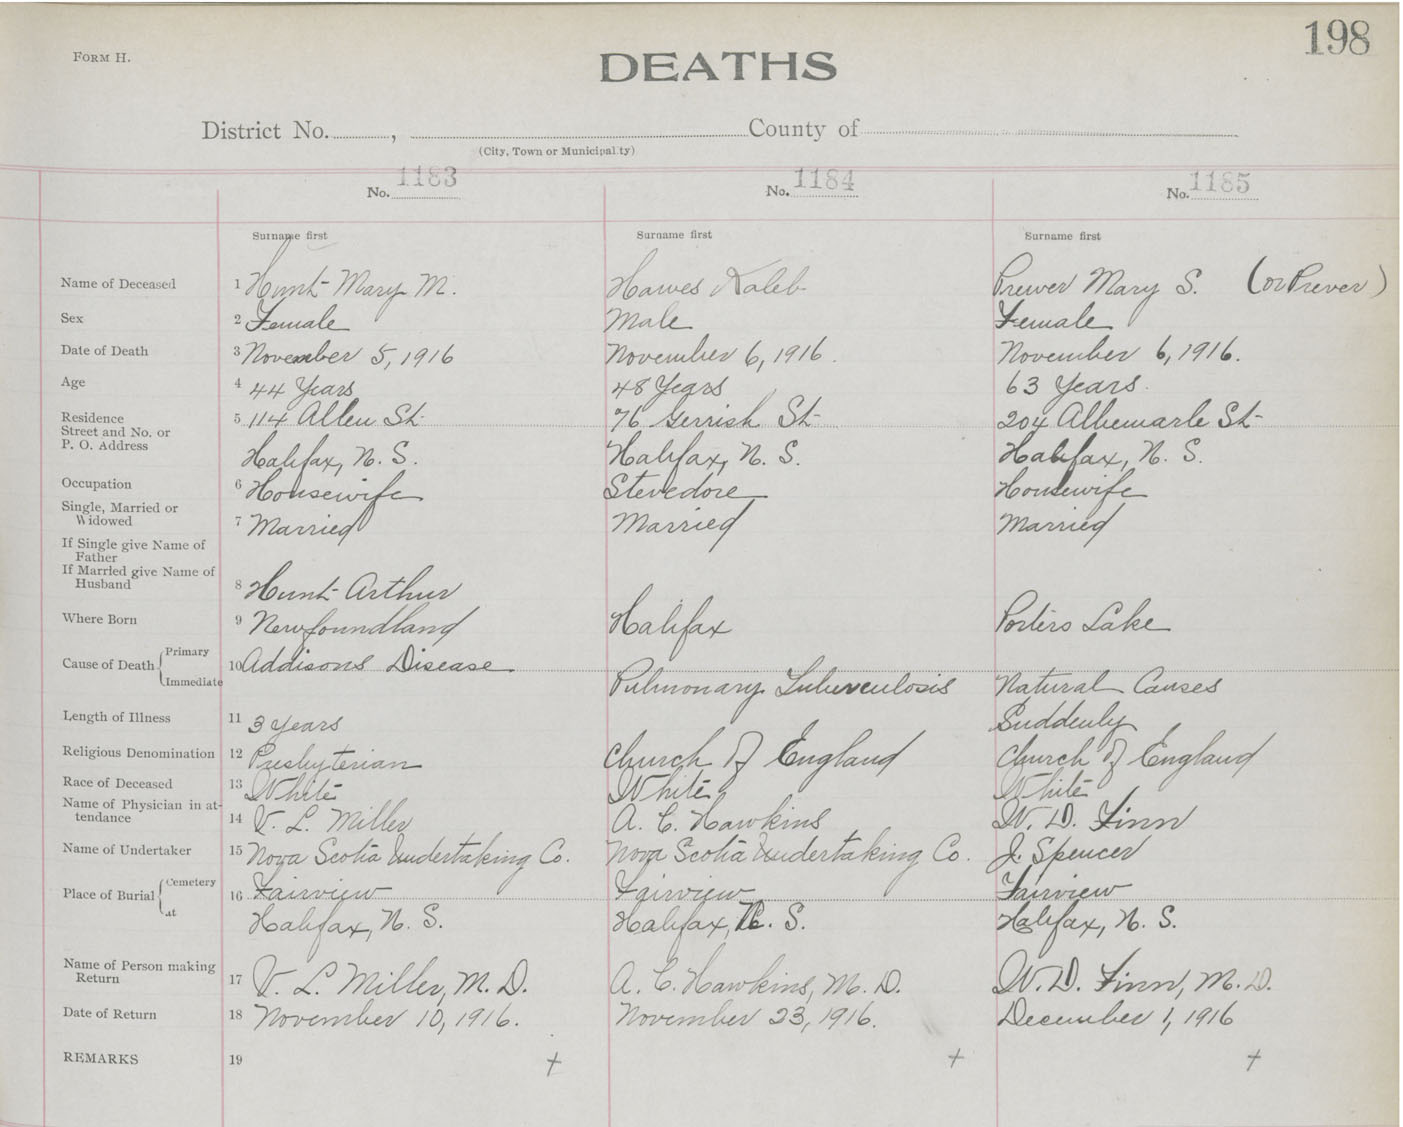 198
FORM H.
DEATHS
District No. , County of
(City, Town or Municipality)
No. 1183 No. 1184 No. 1185
Surname first Surname first Surname first
Name of Deceased 1 Hunt Mary M. Hawes Kaleb Prewer Mary S. (or Prever)
Sex 2 Female Male Female
Date of Death 3 November 5, 1916 November 6, 1916. November 6, 1916.
Age 4 44 Years 48 Years 63 Years
Residence Street and No. or P. O. Address 5 114 Allen St 76 Gerrish St 204 Albemarle St
Halifax, N. S. Halifax, N. S. Halifax, N. S.
Occupation 6 Housewife Stevedore Housewife
Single, Married or Widowed 7 Married Married Married
If Single give Name of Father
If Married give Name of Husband 8 Hunt Arthur
Where Born 9 Newfoundland Halifax Porters Lake
Cause of Death Primary 10 Addisons Disease
Immediate Pulmonary Tuberculosis Natural Causes
Length of Illness 11 3 Years Suddenly
Religious Denomination 12 Presbyterian Church of England Church of England
Race of Deceased 13 White White White
Name of Physician in attendance 14 V. L. Miller A. C. Hawkins W. D. Finn
Name of Undertaker 15 Nova Scotia Undertaking Co. Nova Scotia Undertaking Co. J. Spencer
Place of Burial Cemetery 16 Fairview Fairview Fairview
at Halifax, N. S. Halifax, N. S. Halifax, N. S.
Name of Person making Return 17 V. L. Miller, M. D. A. C. Hawkins, M. D. W. D. Finn, M. D.
Date of Return 18 November 10, 1916. November 23, 1916. December 1, 1916
REMARKS 19 + + +